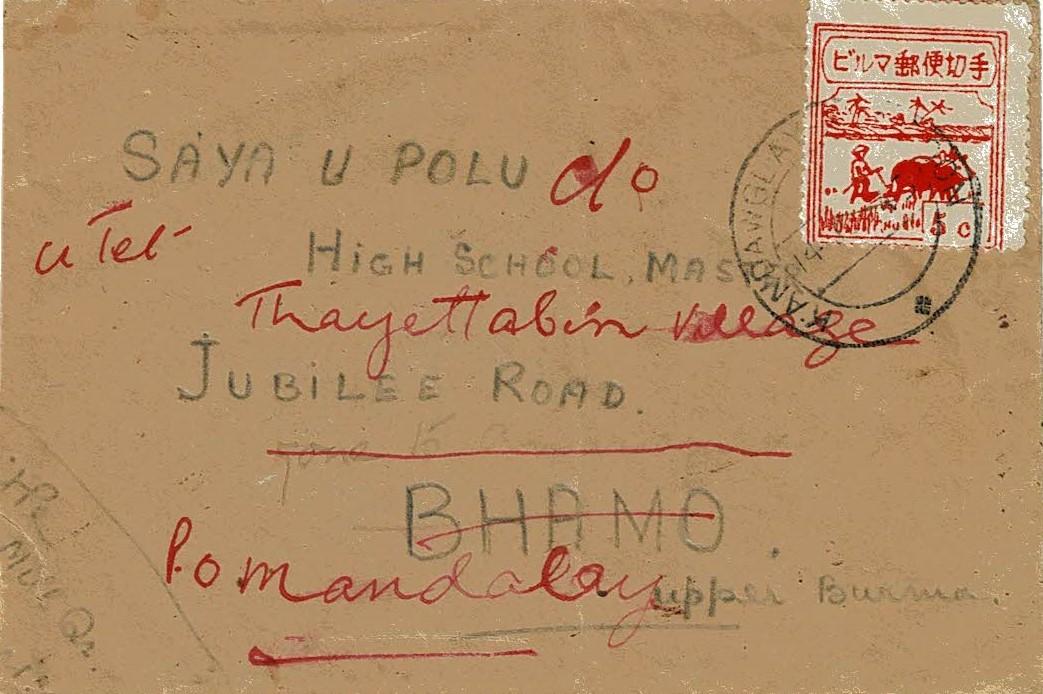 ビルマ郵便切手
5 c
KANDAWGLAY
14
SAYA U POLU c/o
U Tet
HIGH SCHOOL, MASTER
Thayettabin village
JUBILEE ROAD.
BHAMO.
P.O Mandalay
upper Burma.
Qr.